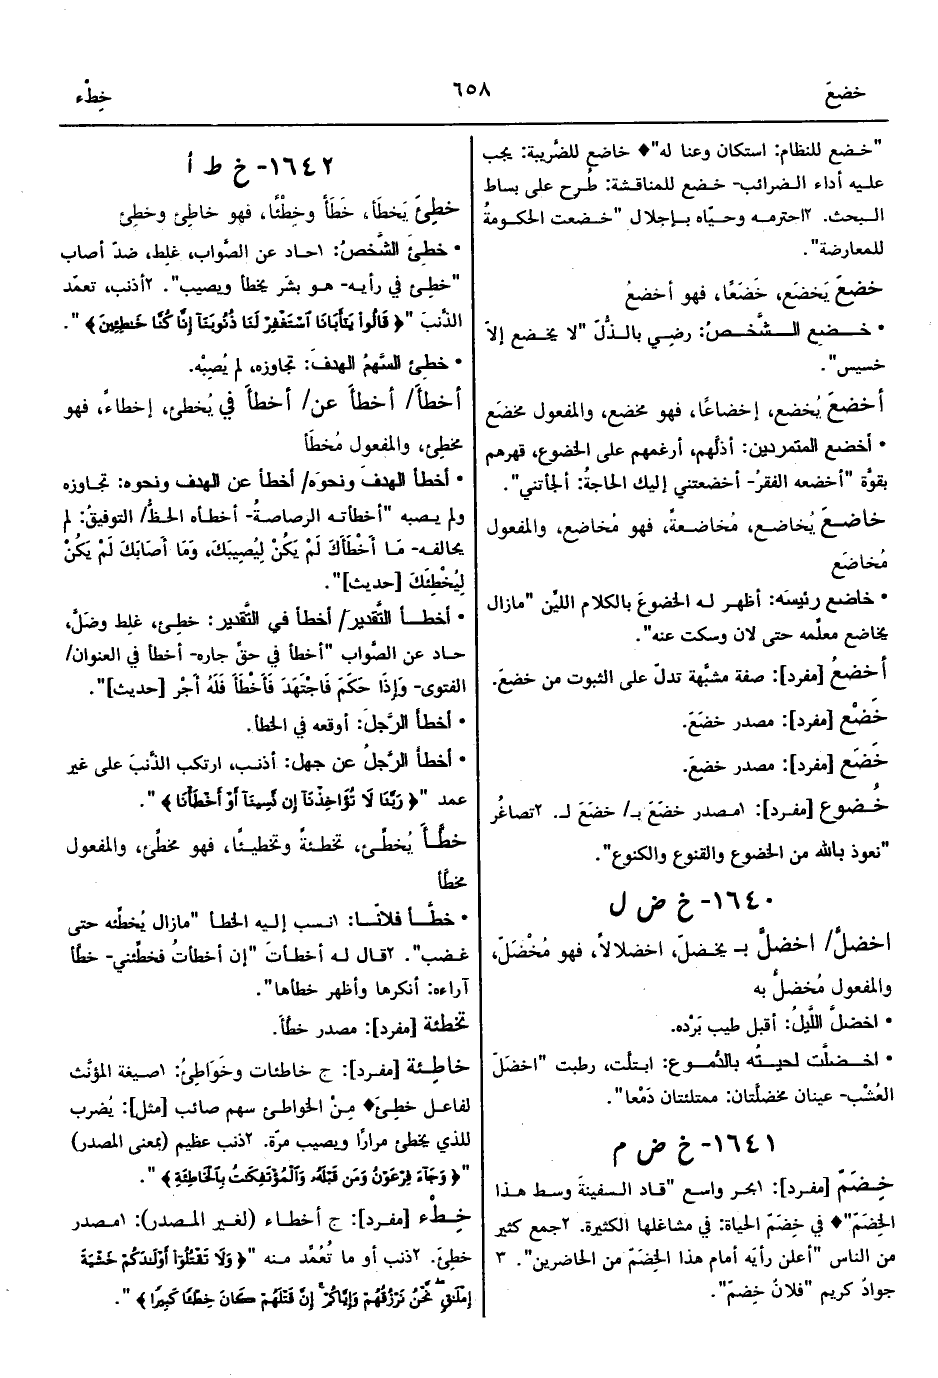 خضعَ
٦٥٨
خِطْء
"خضع للنظام: استكان وعنا له"♦ خاضع للضَّريبة: يجب
عليه أداء الضرائب- خضع للمناقشة: طُرح على بساط
البحث. ٢احترمه وحيّاه بإجلال "خضعت الحكومةُ
للمعارضة".
خضعَ يَخضَع، خَضَعًا، فهو أخضعُ
• خضع الشَّخصُ: رضي بالذُّلّ "لا يخضع إلاّ
خسيس".
أخضعَ يُخضع، إخضاعًا، فهو مخضع، والمفعول مخضَع
• أخضع المتمردين: أذلَّهم، أرغمهم على الخضوع، قهرهم
بقوَّة "أخضعه الفقرُ- أخضعتني إليك الحاجةُ: ألجأتني".
خاضعَ يُخاضع، مُخاضعةً، فهو مُخاضع، والمفعول
مُخاضَع
• خاضع رئيسَه: أظهر له الخضوعَ بالكلام الليِّن "مازال
يخاضع معلّمه حتى لان وسكت عنه".
أخضعُ [مفرد]: صفة مشبَّهة تدلّ على الثبوت من خضعَ.
خَضْع [مفرد]: مصدر خضَعَ.
خَضَع [مفرد]: مصدر خضعَ.
خُضوع [مفرد]: ١مصدر خضَعَ بـ/ خضَعَ لـ. ٢تصاغُر
"نعوذ بالله من الخضوع والقنوع والكنوع".
١٦٤٠- خ ض ل
اخضلَّ/ اخضلَّ بـ يخضلّ، اخضلالاً، فهو مُخْضَلّ،
والمفعول مُخضلٌّ به
• اخضلَّ اللَّيلُ: أقبل طيب بَرْده.
• اخضلَّت لحيتُه بالدُّموع: ابتلَّت، رطبت "اخضَلّ
العُشْب- عينان مخضلّتان: ممتلئتان دَمْعا".
١٦٤١- خ ض م
خِضَمّ [مفرد]: ١بحر واسع "قاد السفينةَ وسط هذا
الخِضَمّ"♦ في خِضَمّ الحياة: في مشاغلها الكثيرة. ٢جمع كثير
من الناس "أعلن رأيَه أمام هذا الخِضَم من الحاضرين". ٣
جوادٌ كريم "فلانٌ خِضمّ".
١٦٤٢- خ ط أ
خطِئَ يَخطَأ، خَطَأً وخِطْئًا، فهو خاطِئ وخطِئ
• خطِئ الشَّخصُ: ١حاد عن الصَّواب، غلِط، ضدّ أصاب
"خطِئ في رأيه- هو بشَر يخطأ ويصيب". ٢أذنب، تعمّد
الذَّنبَ "﴿ قَالُوا يَٰٓأَبَانَا ٱسْتَغْفِرْ لَنَا ذُنُوبَنَآ إِنَّا كُنَّا خَٰطِـِٔينَ ﴾".
• خطئ السَّهمُ الهدفَ: تجاوزه، لم يُصِبْه.
أخطأَ/ أخطأَ عن/ أخطأَ في يُخطئ، إخطاءً، فهو
مخطِئ، والمفعول مُخطَأ
• أخطأ الهدفَ ونحوَه/ أخطأ عن الهدف ونحوه: تجاوزه
ولم يصبه "أخطأته الرصاصةُ- أخطأه الحظُّ/ التوفيقُ: لم
يحالفه- مَا أَخْطَأَكَ لَمْ يَكُنْ لِيُصِيبَكَ، وَمَا أَصَابَكَ لَمْ يَكُنْ
لِيُخْطِئَكَ [حديث]".
• أخطأ التَّقدير/ أخطأ في التَّقدير: خطِئ، غلِط وضلَّ،
حاد عن الصَّواب "أخطأ في حقِّ جاره- أخطأ في العنوان/
الفتوى- وَإِذَا حَكَمَ فَاجْتَهَدَ فَأَخْطَأَ فَلَهُ أَجْر [حديث]".
• أخطأ الرَّجلَ: أوقعه في الخطأ.
• أخطأ الرَّجلُ عن جهل: أذنب، ارتكب الذَّنبَ على غير
عمد "﴿ رَبَّنَا لَا تُؤَاخِذْنَآ إِن نَّسِينَآ أَوْ أَخْطَأْنَا ﴾".
خطَّأَ يُخطِّئ، تخطئةً وتخطيئًا، فهو مخطِّئ، والمفعول
مخطَّأ
• خطَّأ فلانًا: ١نسب إليه الخطأ "مازال يُخطِّئه حتى
غضب". ٢قال له أخطأتَ "إن أخطأتُ فخطِّئني- خطأ
آراءه: أنكرها وأظهر خطأها".
تخطئة [مفرد]: مصدر خطَّأَ.
خاطِئة [مفرد]: ج خاطئات وخَوَاطِئُ: ١صيغة المؤنَّث
لفاعل خطِئَ♦ مِنْ الخواطئ سهم صائب [مثل]: يُضرب
للذي يخطئ مرارًا ويصيب مرّة. ٢ذنب عظيم (بمعنى المصدر)
"﴿ وَجَآءَ فِرْعَوْنُ وَمَن قَبْلَهُۥ وَٱلْمُؤْتَفِكَٰتُ بِٱلْخَاطِئَةِ ﴾".
خِطْء [مفرد]: ج أخطاء (لغير المصدر): ١مصدر
خطِئَ. ٢ذنب أو ما تُعُمِّد منه "﴿ وَلَا تَقْتُلُوٓا۟ أَوْلَٰدَكُمْ خَشْيَةَ
إِمْلَٰقٍ ۖ نَّحْنُ نَرْزُقُهُمْ وَإِيَّاكُمْ ۚ إِنَّ قَتْلَهُمْ كَانَ خِطْـًٔا كَبِيرًا ﴾".